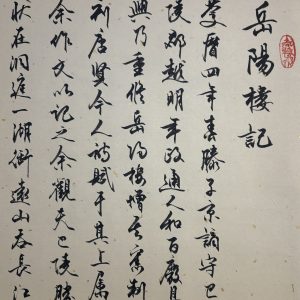 岳陽樓記
慶曆四年春滕子京謫守巴
陵郡越明年政通人和百廢具
興乃重修岳陽樓增其舊制
刻唐賢今人詩賦于其上屬
余作文以記之余觀夫巴陵勝
狀在洞庭一湖銜遠山吞長江